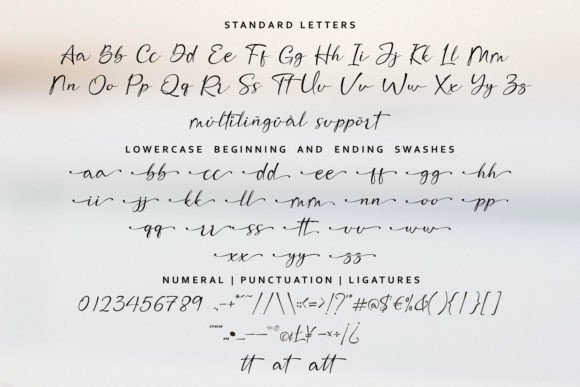 STANDARD LETTERS
Aa Bb Cc Dd Ee Ff Gg Hh Ii Jj Kk Ll Mm
Nn Oo Pp Qq Rr Ss Tt Uu Vv Ww Xx Yy Zz
multilingual support
LOWERCASE BEGINNING AND ENDING SWASHES
aa bb cc dd ee ff gg hh
ii jj kk ll mm nn oo pp
qq rr ss tt vv ww
xx yy zz
NUMERAL | PUNCTUATION | LIGATURES
0123456789 //\\:;<=>|?#@$€%&(){|}[]
©£¥−×÷¡¿
tt at att